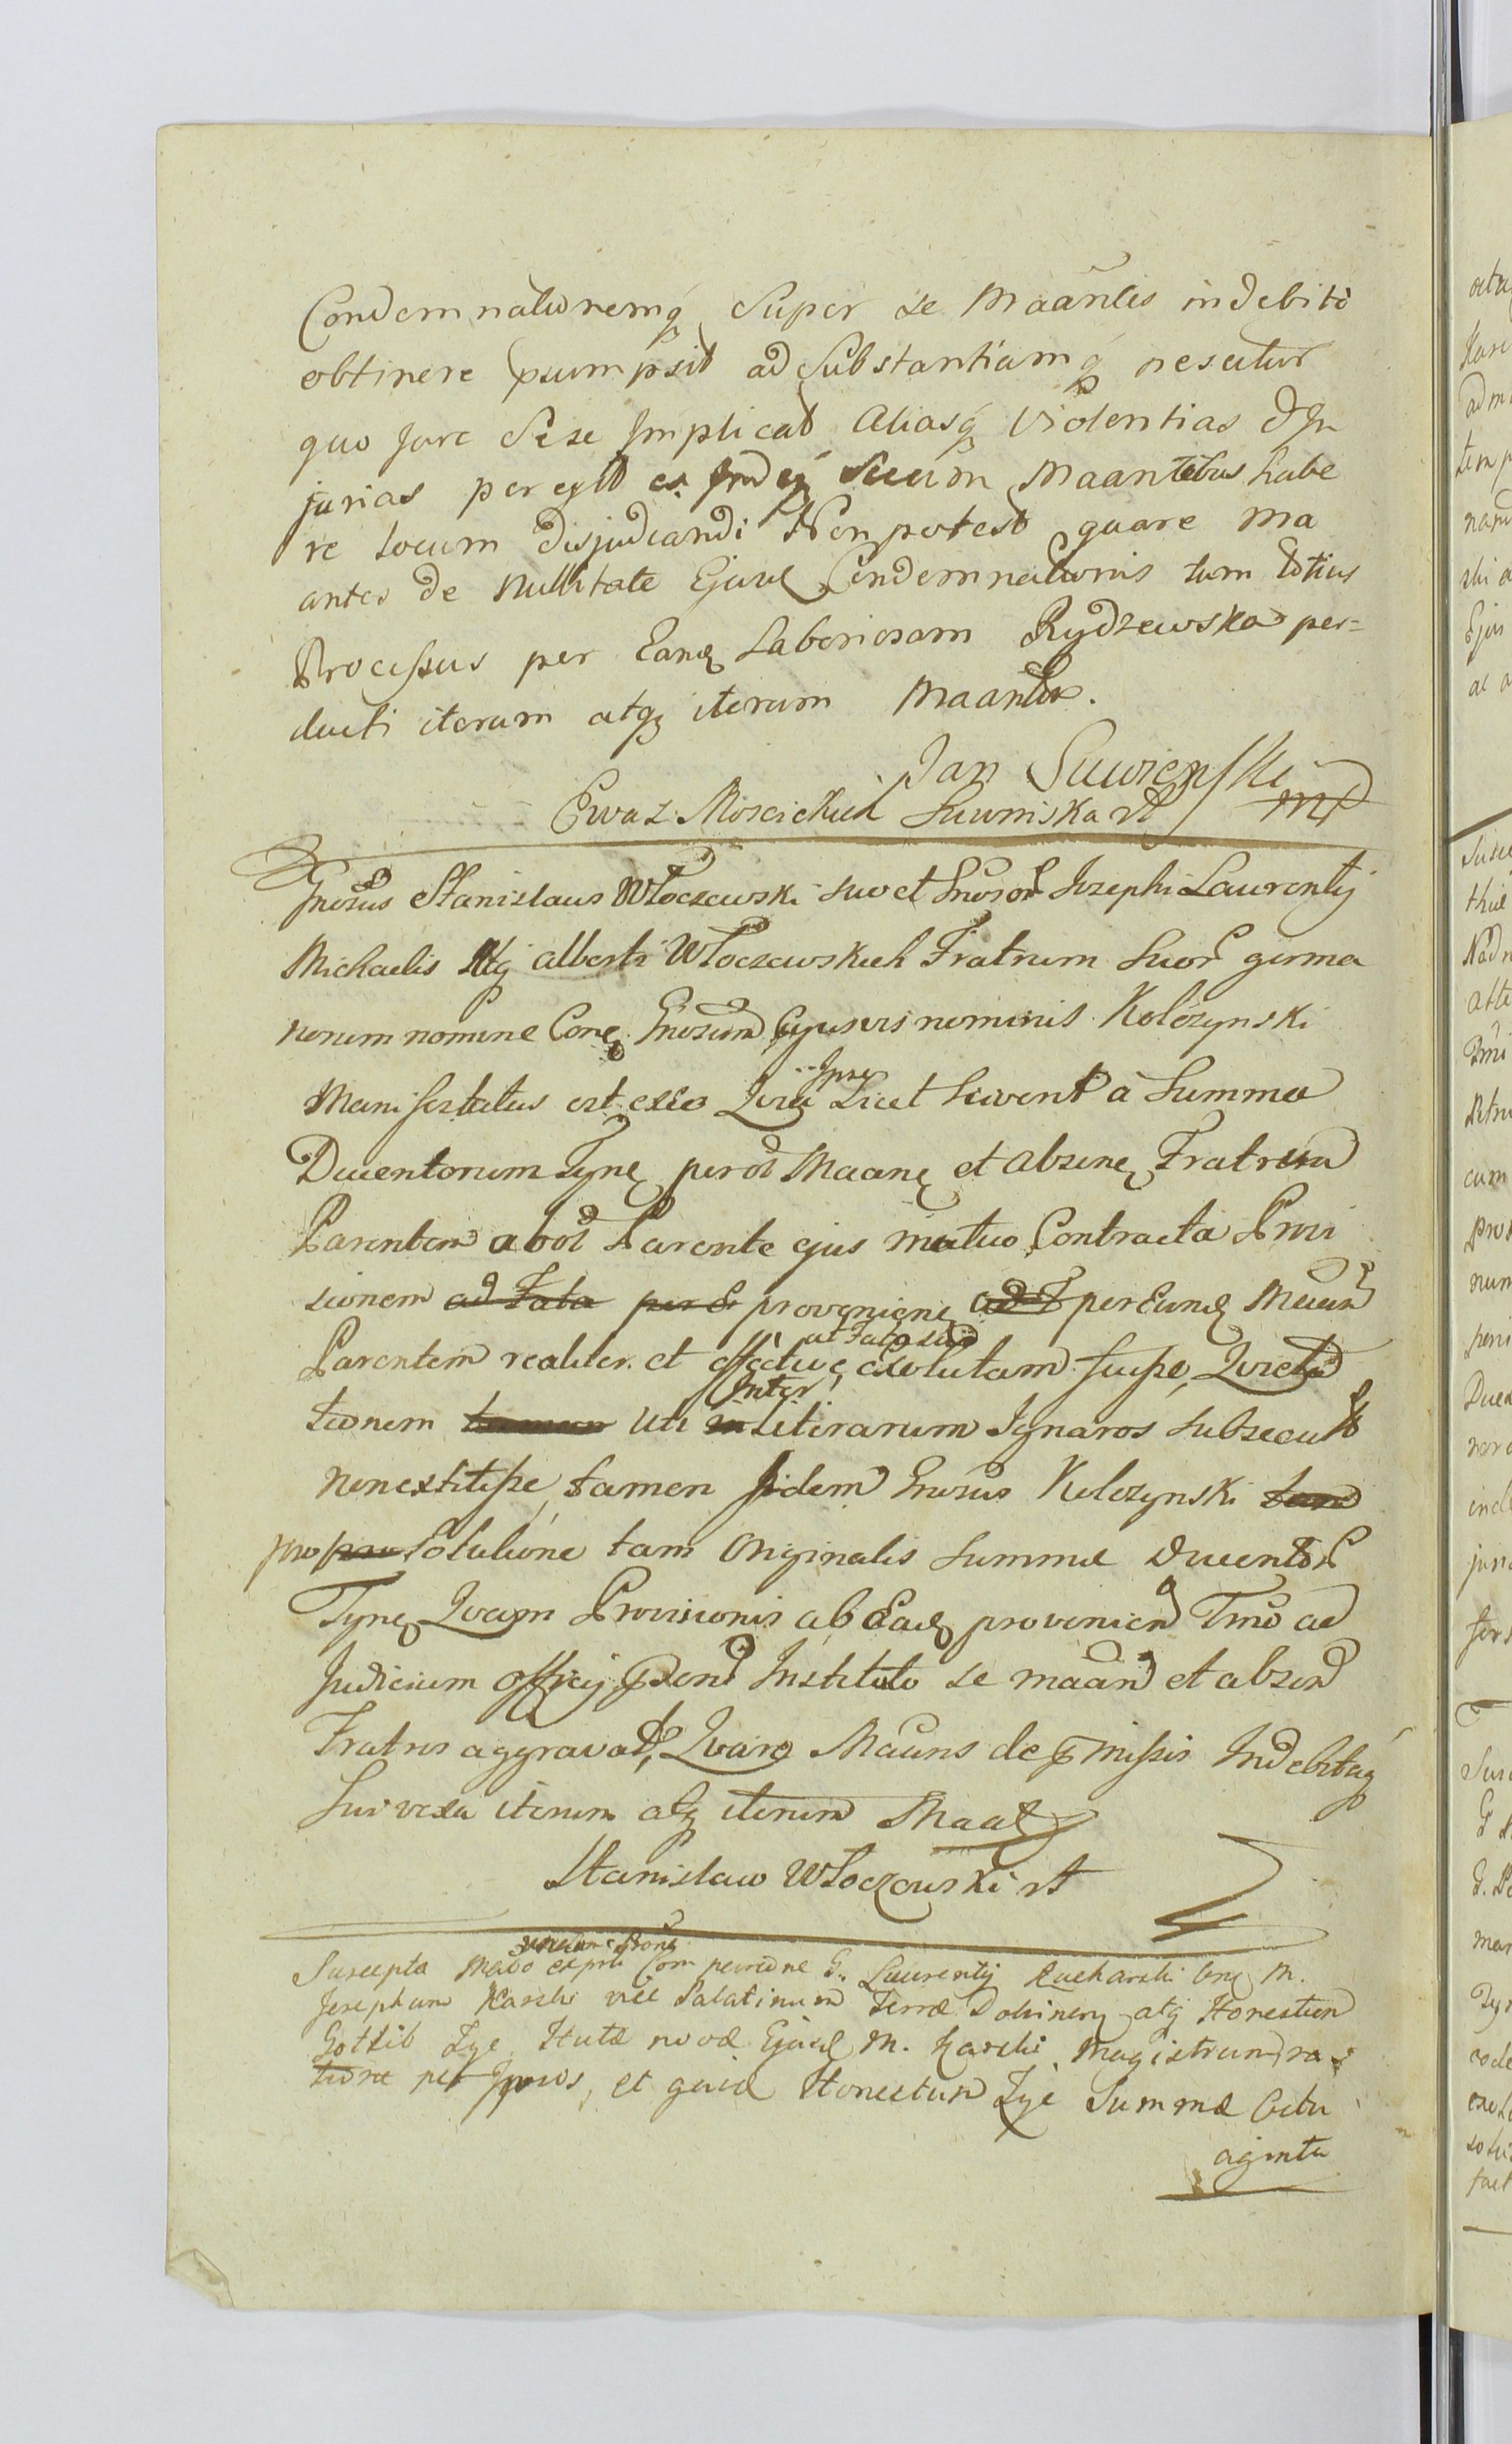 Condemnationemq Super se Maantes indebite
obtinere psumpsit ad Substantiamq nescitur
quo Jure Sese Implicat Aliasq Violentias & In
jurias peregit ea Secum Maantibus habe
re Locum disjudicandi Non potest quare Ma
antes de Nullitate Ejusd Condemnationis tum totius
Processus per Eand Laboriosam Rydzewska per=
ducti iterum atq iterum Maantur.
Jan Suwienski
Ewa z Moscickich Suwniska
Gnosus Stanislaus Włoczewski suo et Gnosor Josephi Laurentij
Michaelis Atq Alberti Włoczewskich Fratrum Suor germa
norum nomine Conq Gnosum Cujusvis nominis Kolczynski
Manifestatus est eseo Quia Ipse Licet Sciverit a Summa
Ducentorum Tynf perol Maane et absene Fratrum
Parentem abol Parente ejus mutuo Contracta Provi
sionem ad Fata proveniene per Eund Maan
Parentem realiter et effective ad Fata sua exolutam fuisse, Quieta
tionem uti Inter Literarum Ignaros subsecut
non extitisse, tamen Gnosus Kolczynski
pro Solutione tam Originalis Summe Ducentor
Tynf Quam Provisionis ab Ead provenien Tmo ad
Judicium Officij pson Instituto se maan et absen
Fratres aggravat, Quare Mauns de pmissis Indebitaq
Sui vexa iterum atq iterum Maat
Stanislaw Włoczewski
Suscepta Mado Laurentij Kucharski M.
Josephum Karski vice Palatinum Terræ atq Honestum
Gotlib Zye Hutæ novæ Ejusd M. Karski Magistrum
per Ipsos, et quid Honestum Zye Summæ Octu
aginta